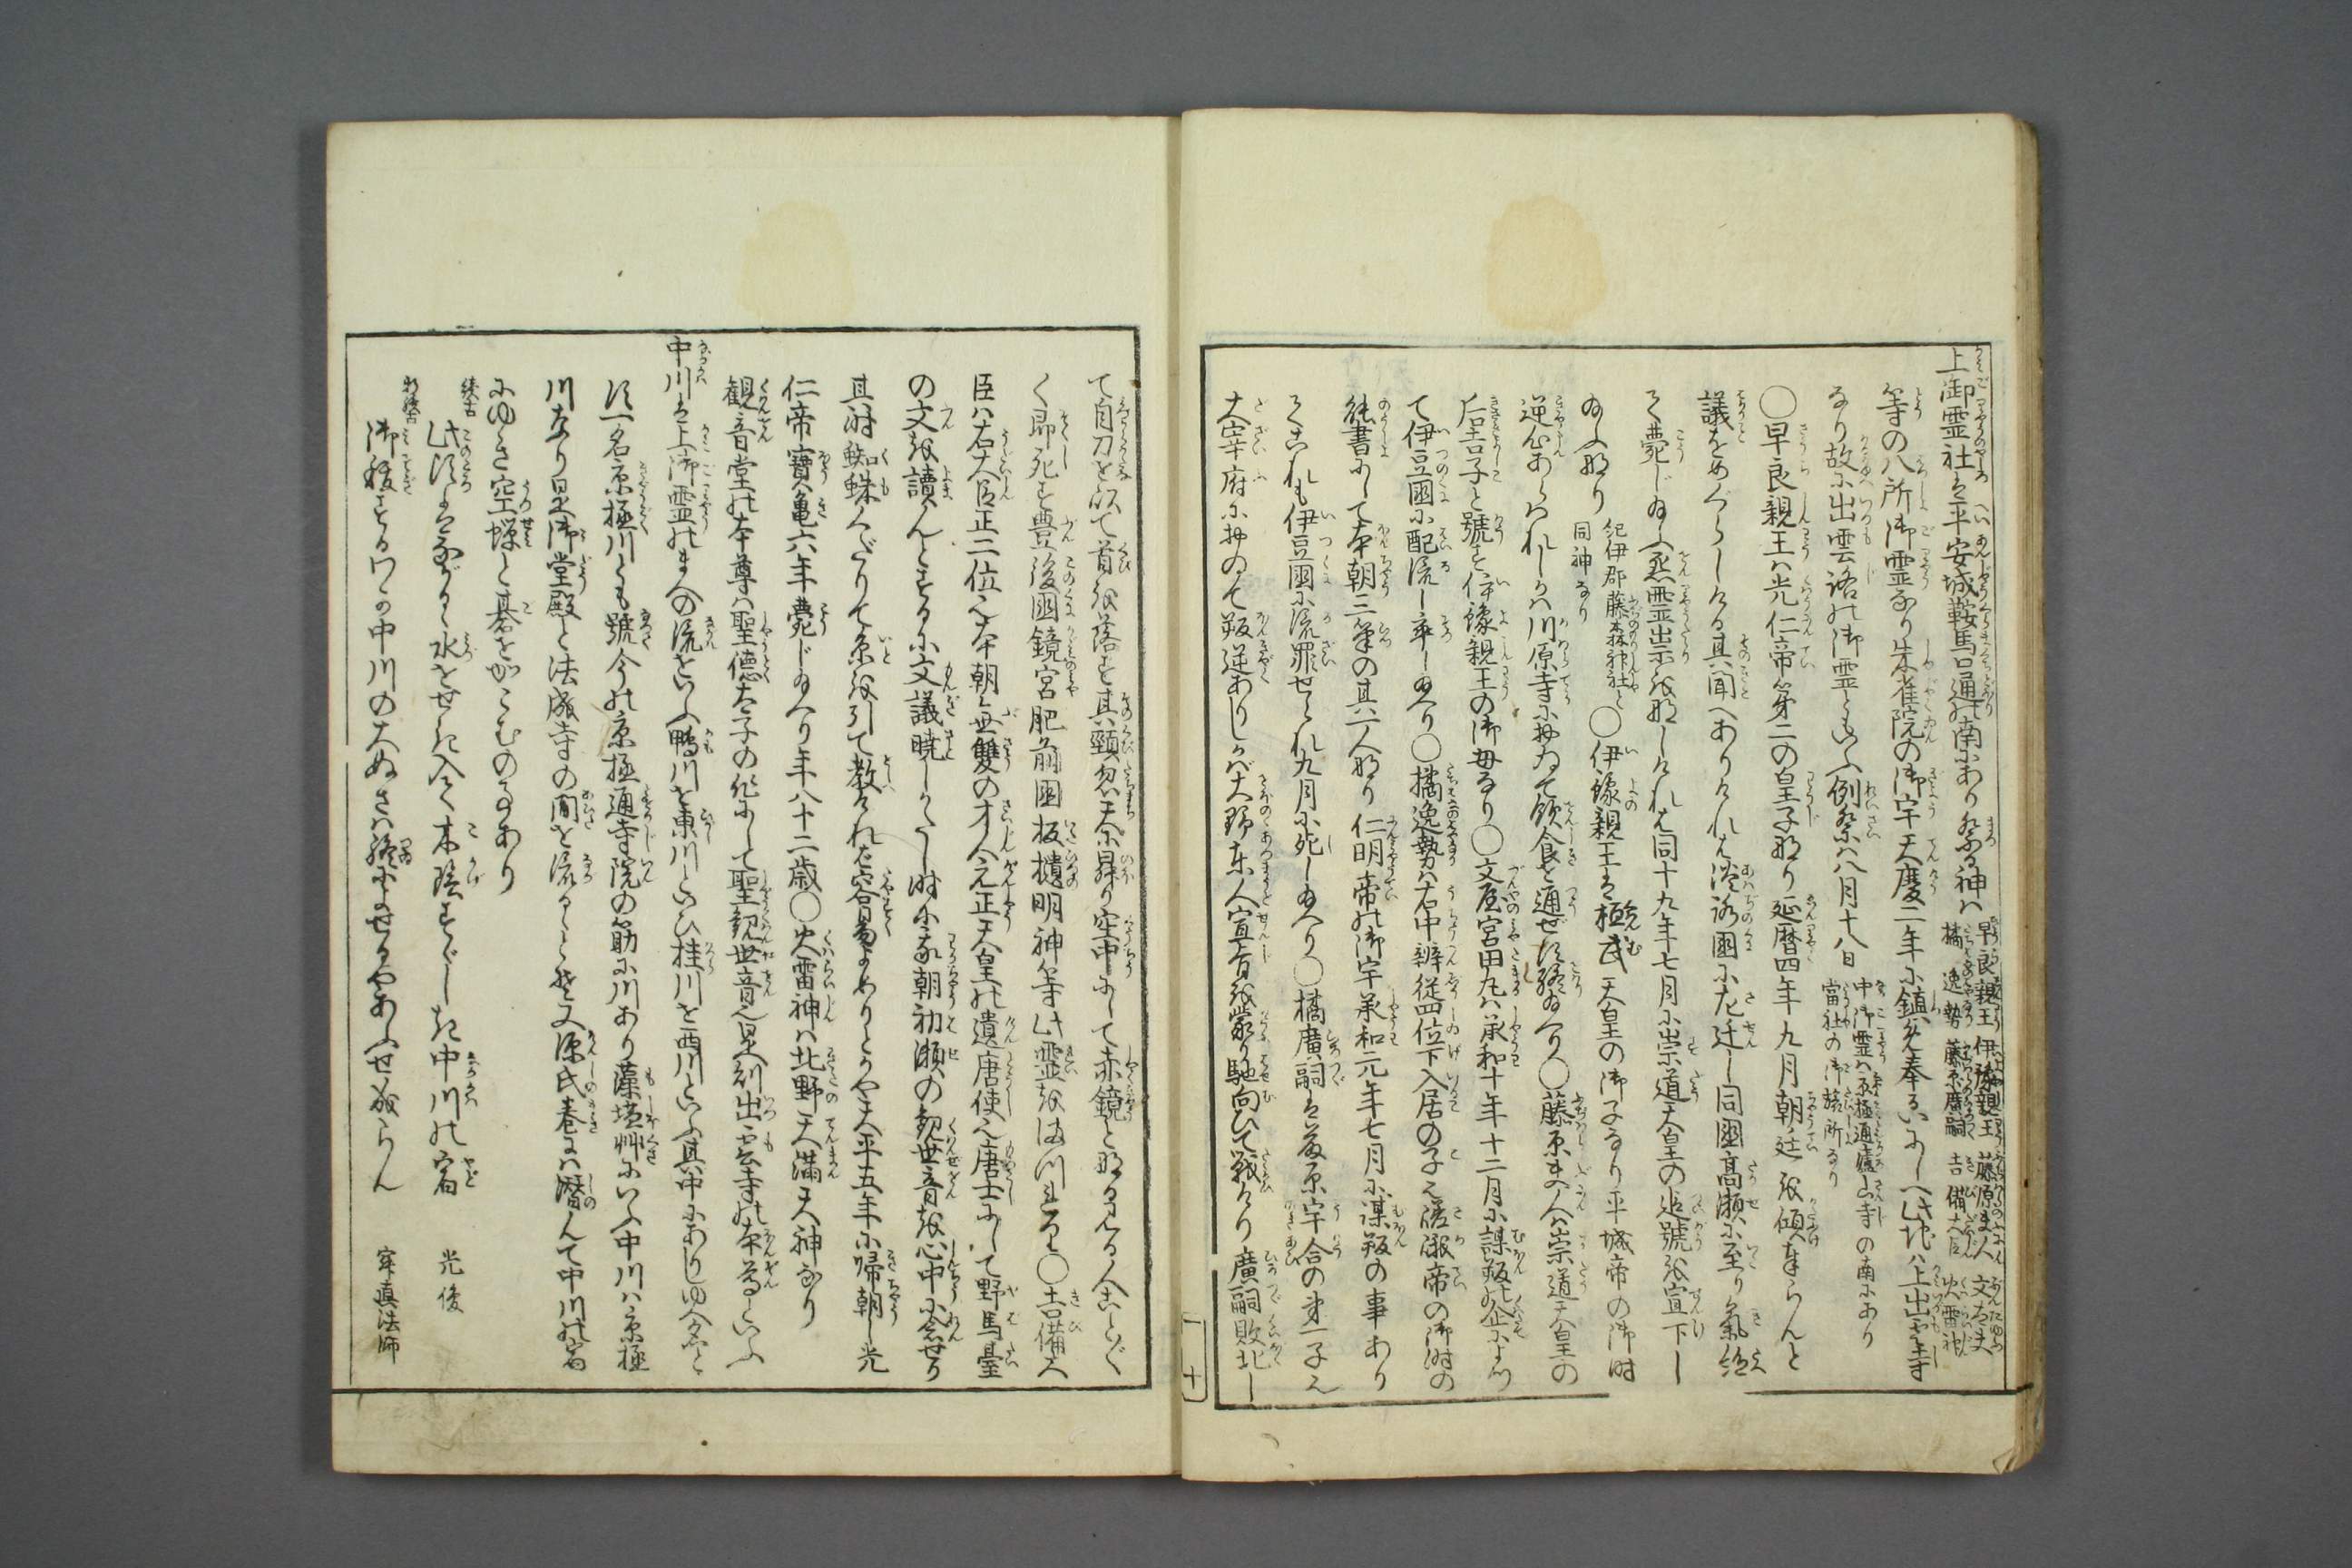 上御霊社は平安城鞍馬口通の南にあり祭る神は早良親王 伊豫親王 藤原夫人 文太夫 橘逸勢 藤原廣嗣 吉備大臣 火雷神
等の八所御霊なり朱雀院の御宇天慶二年に鎮め奉るいにしへ此地は上出雲寺
なり故に出雲路の御霊ともいふ例祭は八月十八日 中御霊は京極通廬山寺の南にあり 當社の御旅所なり
〇早良親王は光仁帝第二の皇子なり延暦四年九月朝廷を傾け奉らんと
議をめぐらしける其聞へありければ淡路國に左迁し同國高瀬に至り氣絶
て薨じ給ふ怨霊出示をなしければ同十九年七月に崇道天皇の追號を宣下し
給ふなり 紀伊郡藤森神社と同神なり 〇伊豫親王は桓武天皇の御子なり平城帝の御時
逆心あらはれしかば川原寺に押なめて飲食を通ぜず終給へり〇藤原夫人は崇道天皇の
后吉子と號す伊豫親王の御母なり〇文屋宮田丸は承和十年十二月に謀叛の企によつ
て伊豆國に配流し卒し給へり〇橘逸勢は右中辨従四位下入居の子也嵯峨帝の御時の
能書にして本朝三筆の其一人なり仁明帝の御宇承和元年七月に謀叛の事あり
てこれも伊豆國に流罪せられ九月に死し給へり〇橘廣嗣は藤原宇合の第一子也
大宰府に於ゐて叛逆ありしかば大野東人宣旨を蒙り馳向ひて戦けり廣嗣敗北し
て自刀を以て首を落す其頸忽天に昇り空中にして赤鏡となる見る人ことごと
く即死す豊後國鏡宮肥前國板櫃明神等此霊をまつれると〇吉備大
臣は右大臣正二位也本朝無雙の才人也元正天皇の遣唐使也唐土にして野馬臺
の文を讀んとするに文議暁しがたし時に我朝初瀬の観世音を心中に念ぜり
其時蜘蛛くだりて糸を引て教ければ容易よめりとかや天平五年に帰朝し光
仁帝寶亀六年薨じ給へり年八十二歳〇火雷神は北野天満天神なり
観音堂の本尊は聖徳太子の作にして聖観世音也是則出雲寺の本尊といふ
中川は上御霊のまへの流をいふ鴨川を東川といひ桂川を西川といふ其中にありしゆへ也と
ぞ一名京極川とも號今の京極通寺院の筋に川あり藻塩艸にいふ中川は京極
川なり是御堂殿と法成寺の間を流るゝと也又源氏巻には潜んで中川の宿
にゆき空蝉と碁をかこむの事あり
続古 此頃は流るゝ水をせき入て木陰すゞしき中川の宿 光俊
新続古 御秡するけふ中川の大ぬさは終によるせやあふせ成らん 宋真法師
十